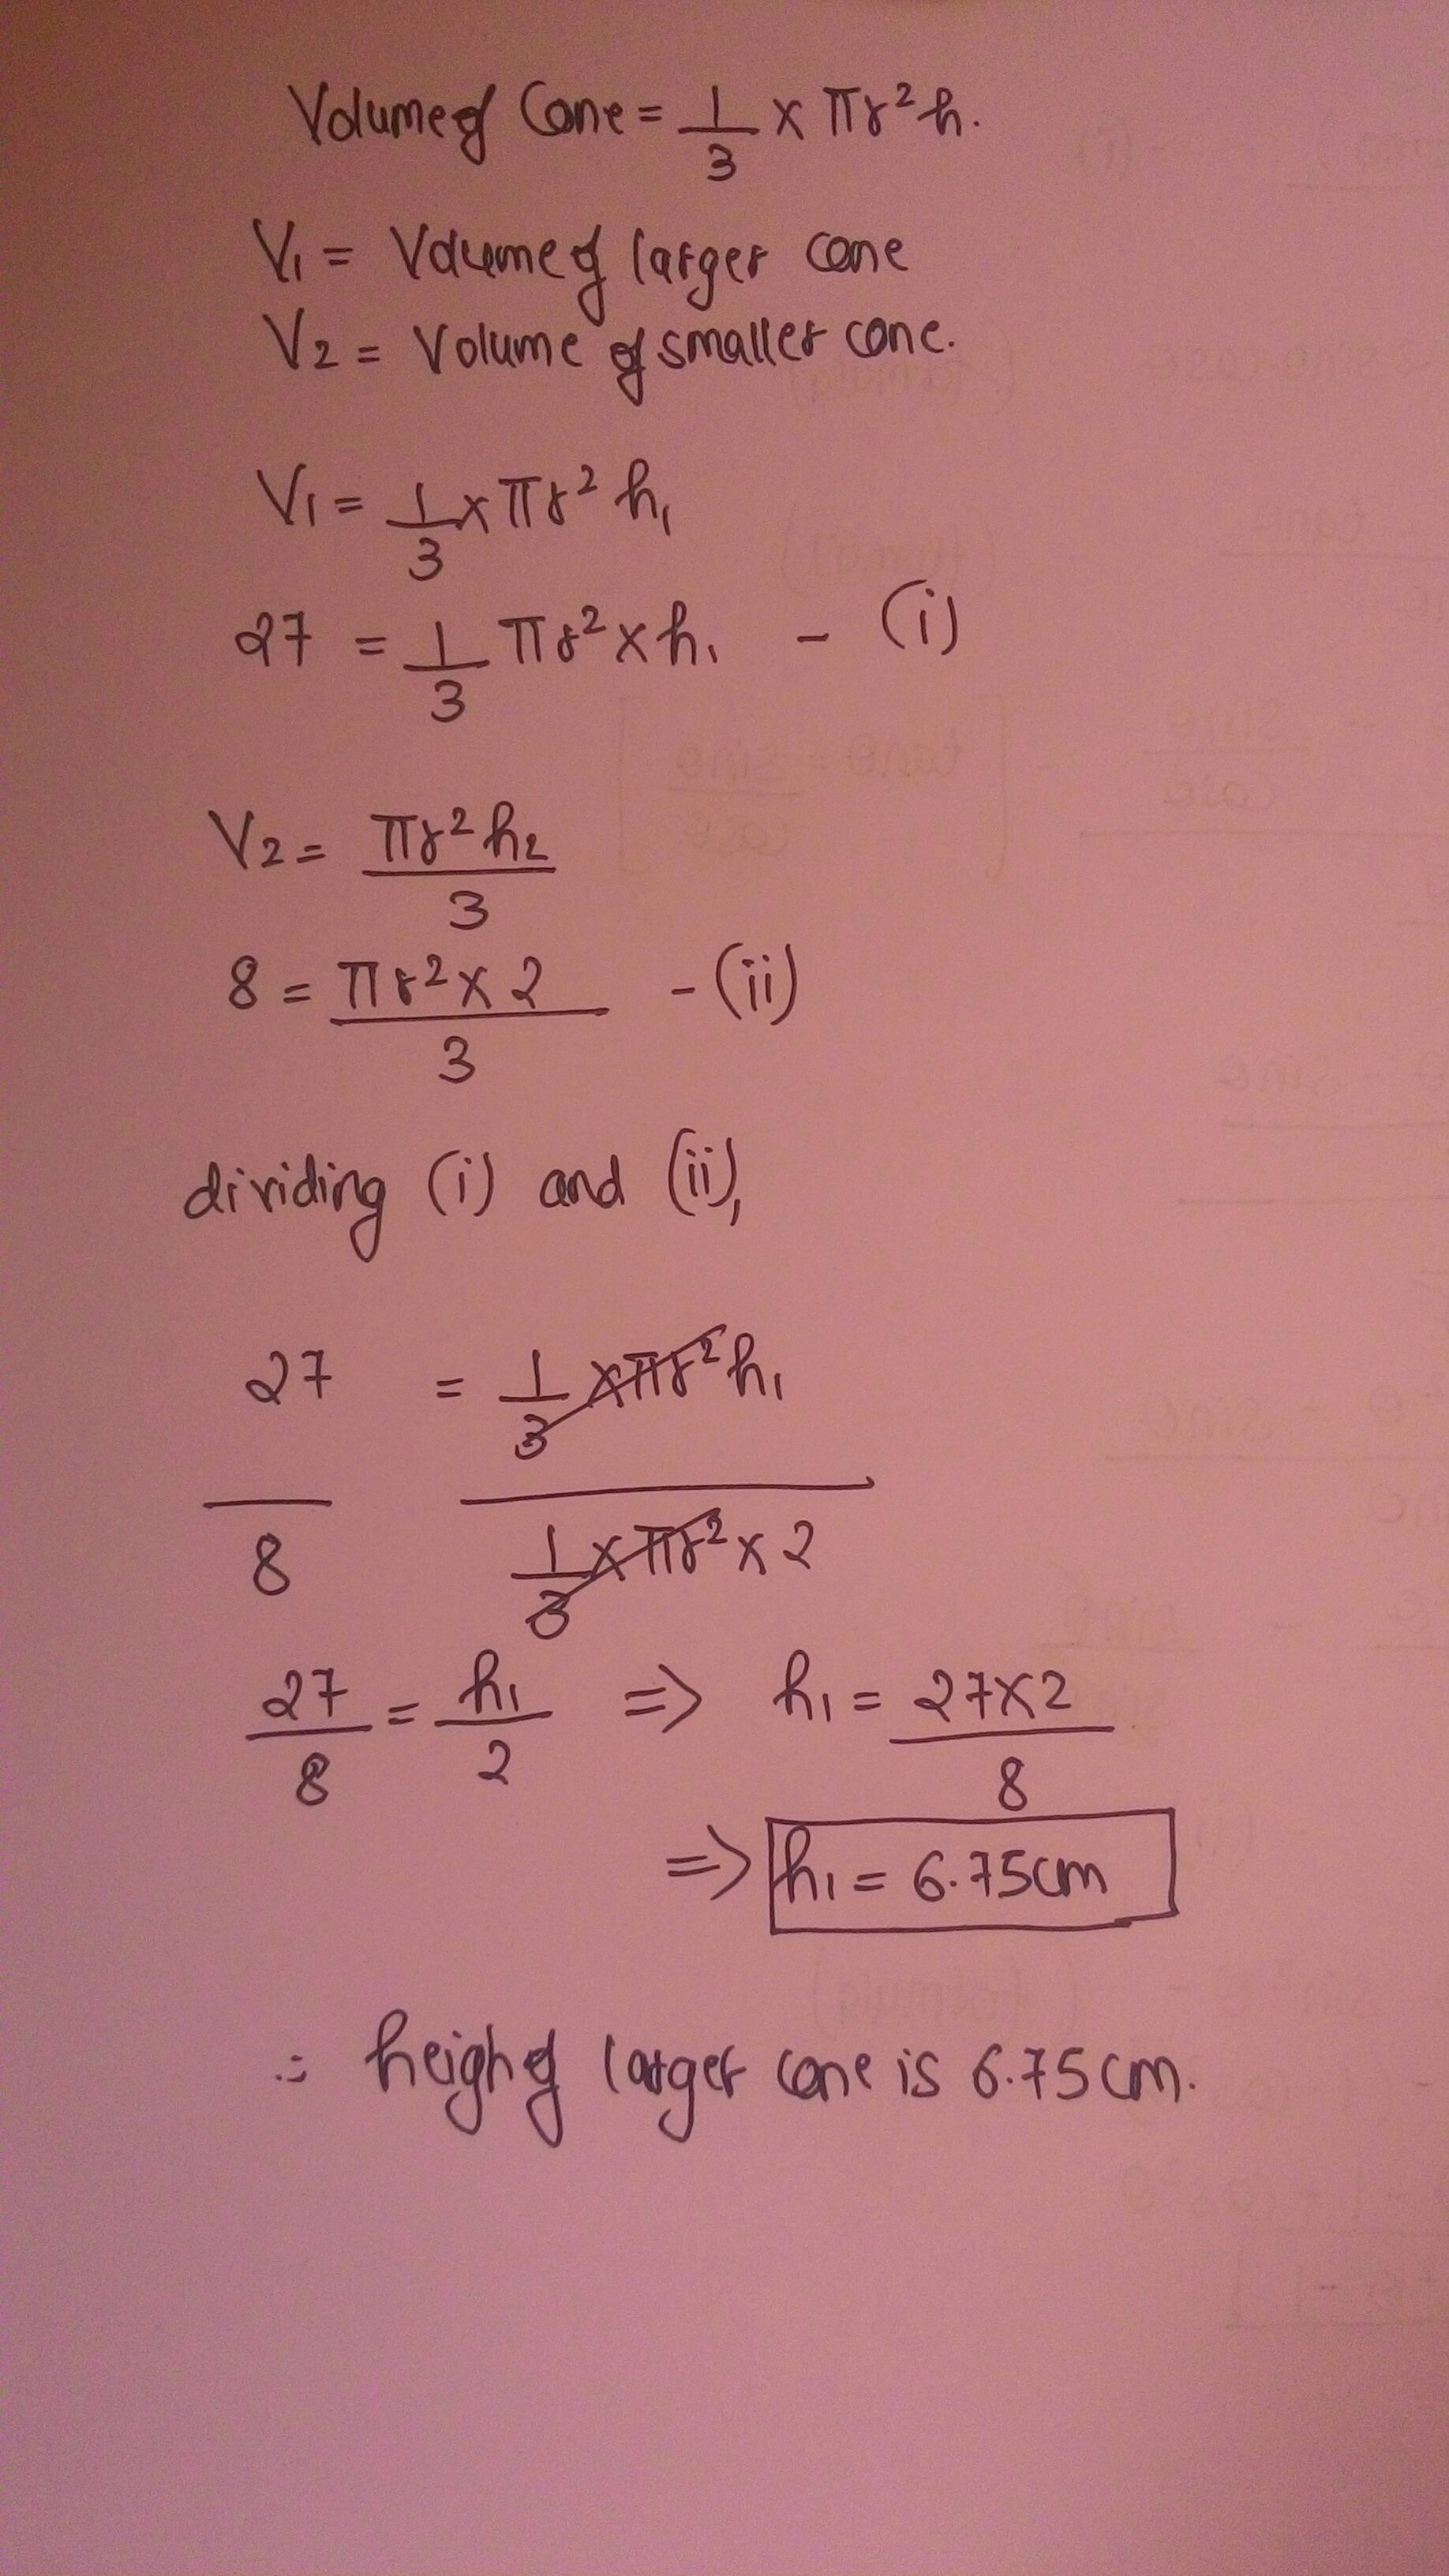 Volume of Cone = 1/3 × πr²h.
V₁ = Volume of larger cone
V₂ = Volume of smaller cone.
V₁ = 1/3 × πr² h₁
27 = 1/3 πr² × h₁ - (i)
V₂ = πr² h₂/3
8 = πr² × 2/3 - (ii)
dividing (i) and (ii),
27/8 = (1/3 × πr² h₁)/(1/3 × πr² × 2)
27/8 = h₁/2 => h₁ = 27×2/8
=> h₁ = 6.75cm
∴ heighof larger cone is 6.75cm.